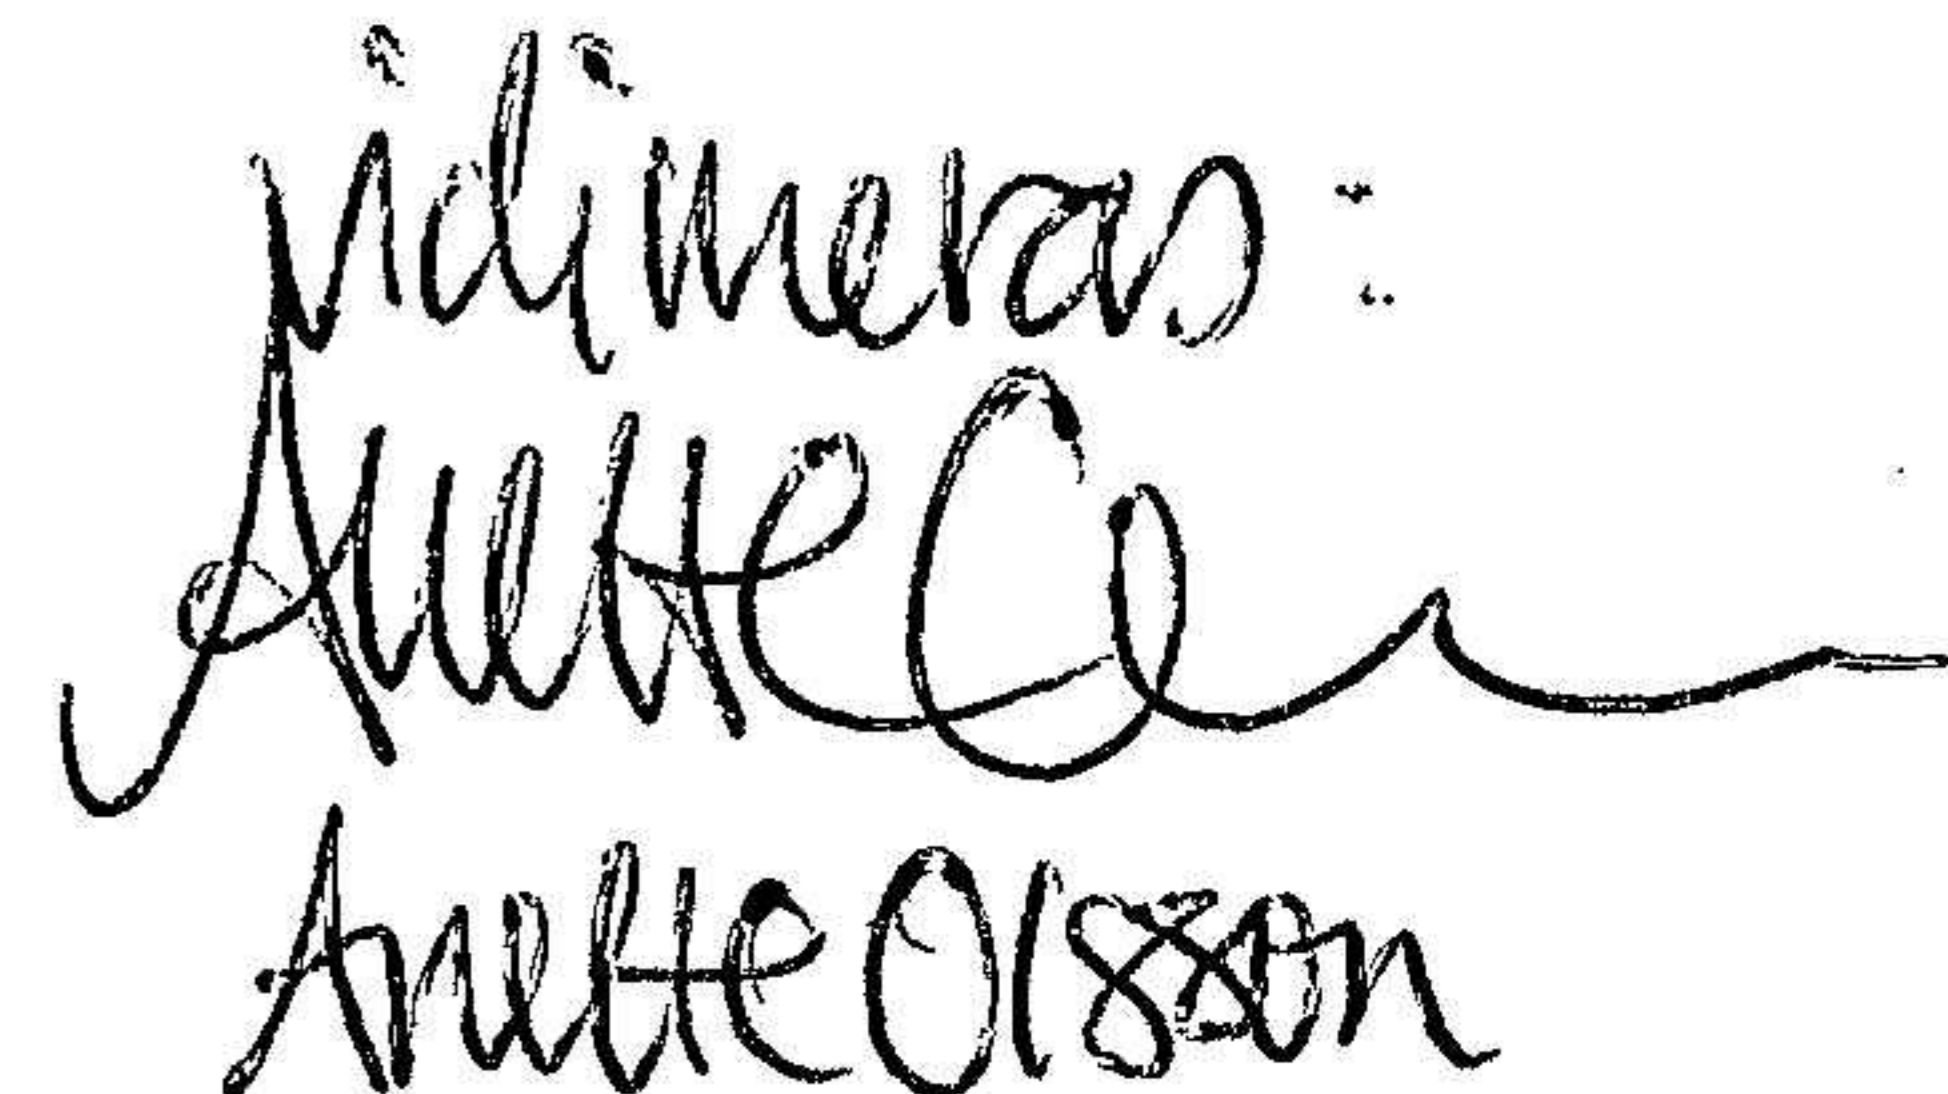 Vidimeras:
Anette O
Anette Olsson